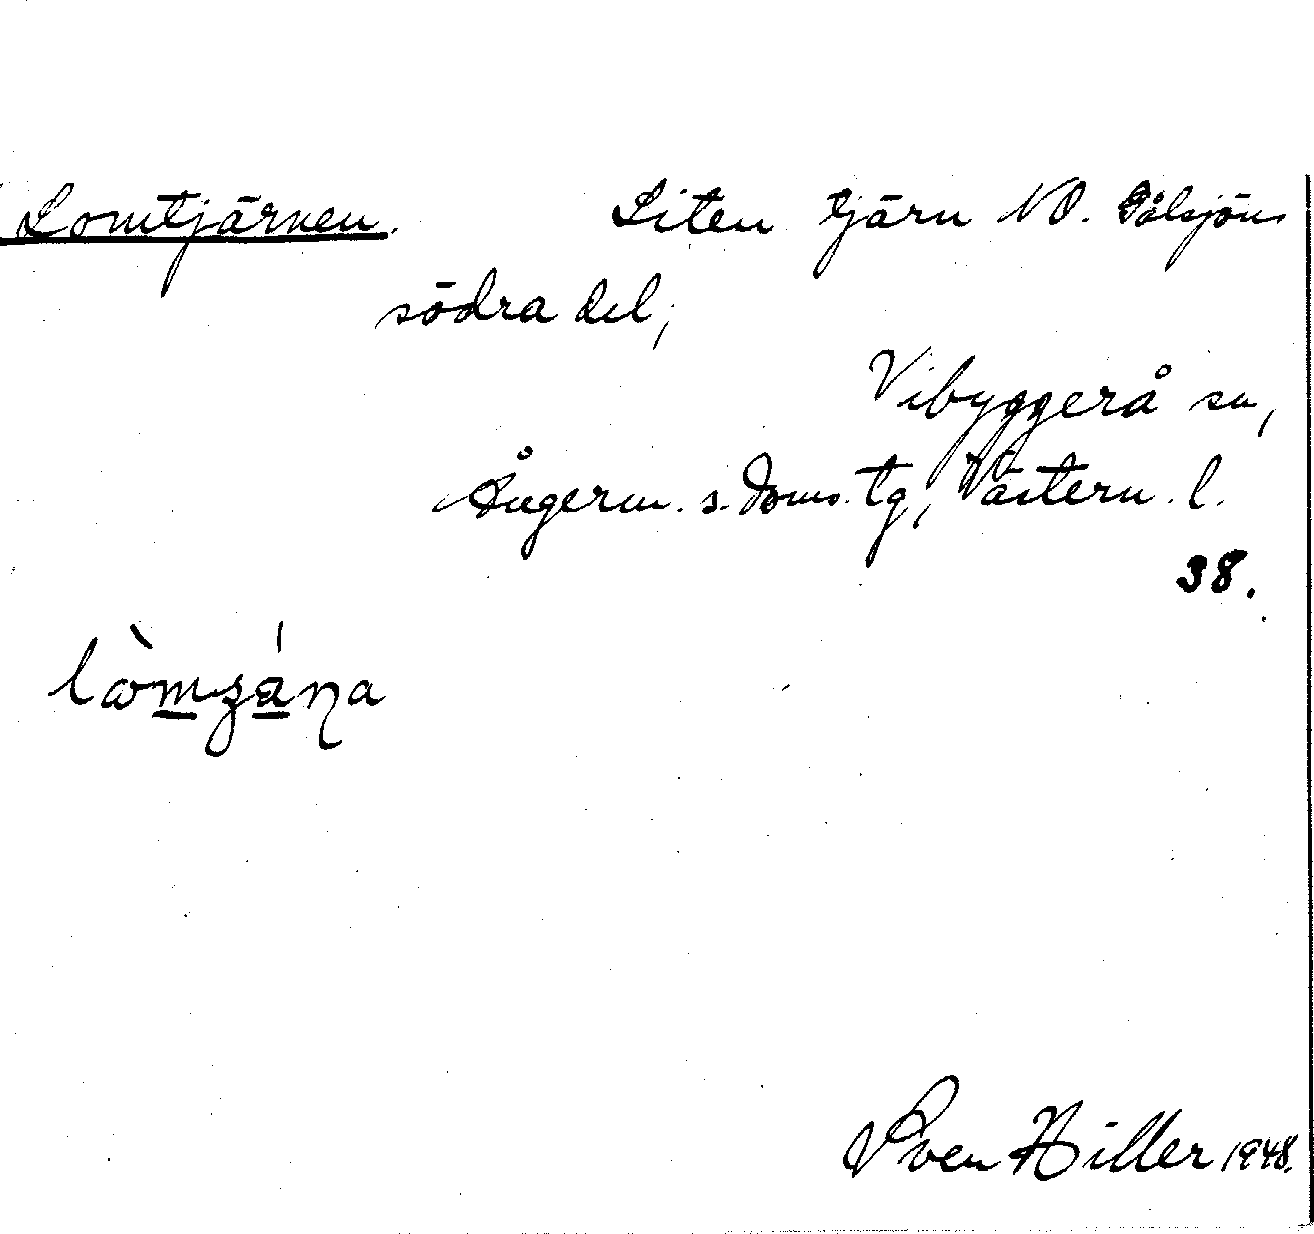 Lomtjärnen. Liten tjärn NO. Gålsjöns
södra del;
Vibyggerå sn,
Ångerm. s. doms. tg, Västern. l.
38.
Sven Hiller 1948.